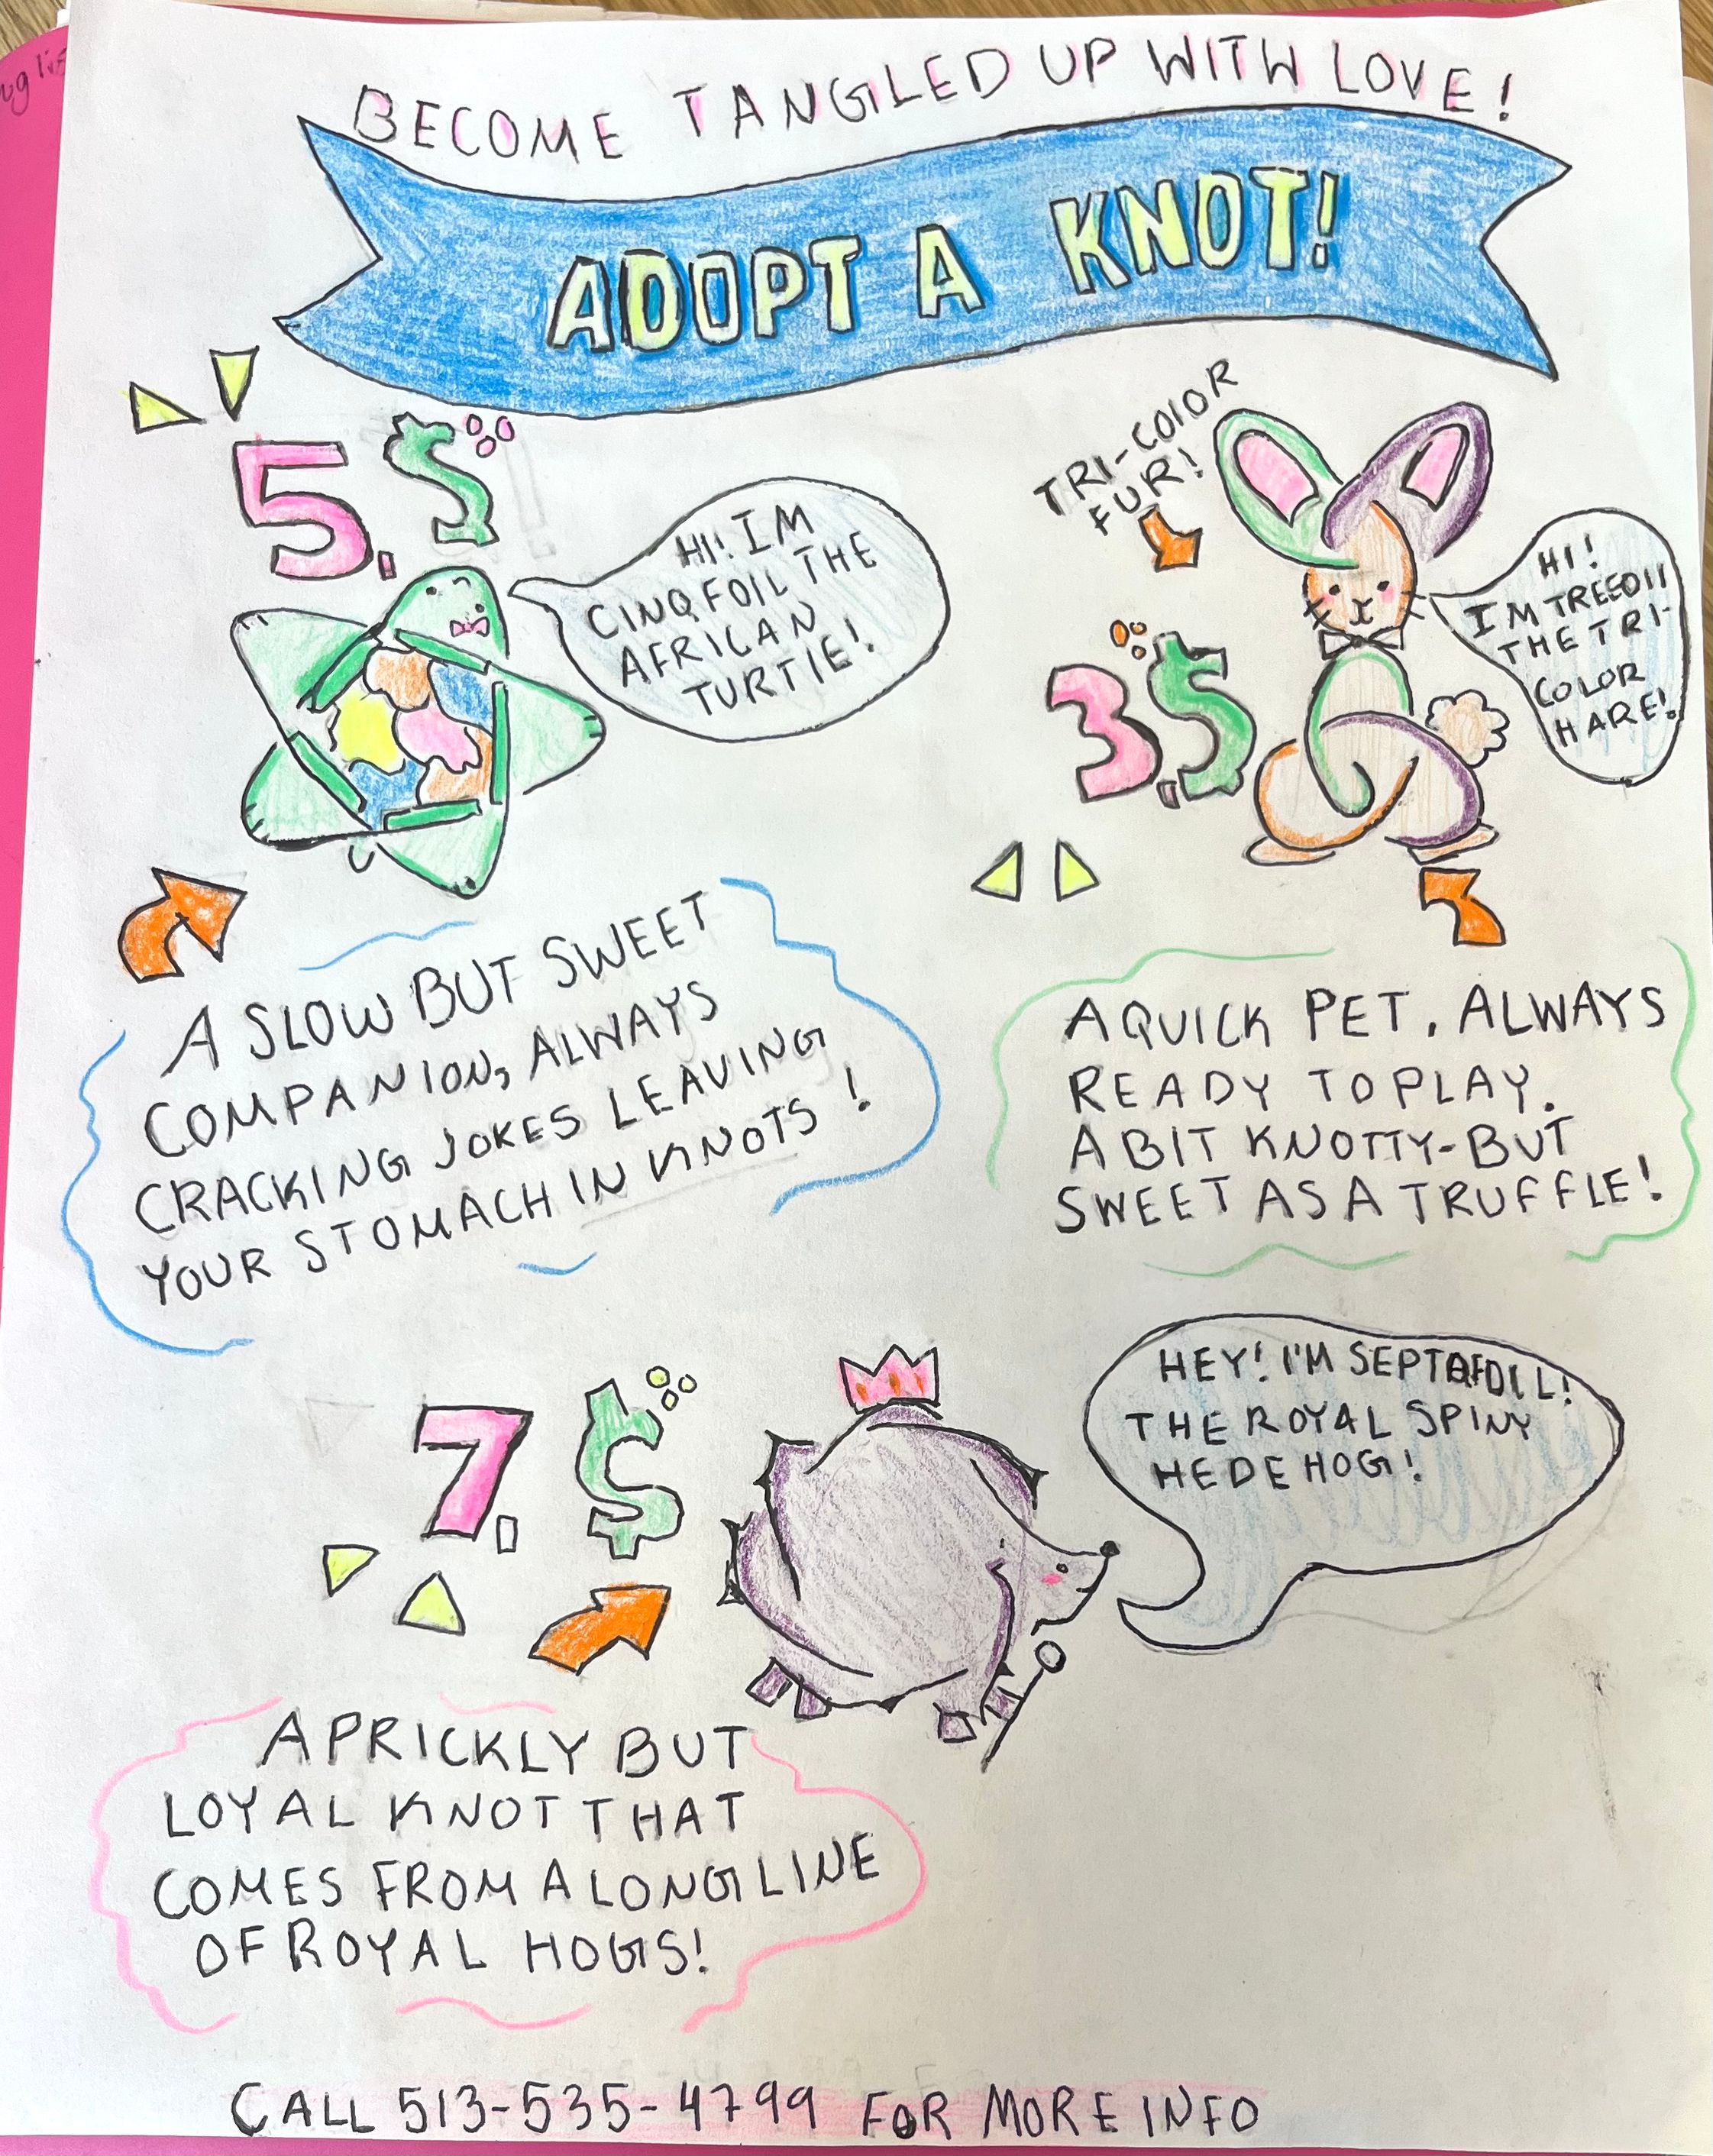 BECOME TANGLED UP WITH LOVE!
ADOPT A KNOT!
5.$
HI! IM
CINQFOIL THE
AFRICAN
TURTLE!
TRI-COLOR
FUR!
3.$
HI!
I'M TREFOIL
THE TRI-
COLOR
HARE!
A SLOW BUT SWEET
COMPANION, ALWAYS
CRACKING JOKES LEAVING
YOUR STOMACH IN KNOTS!
A QUICK PET. ALWAYS
READY TO PLAY.
A BIT KNOTTY-BUT
SWEET AS A TRUFFLE!
7.$
HEY! I'M SEPTAFOIL!
THE ROYAL SPINY
HEDEHOG!
A PRICKLY BUT
LOYAL KNOT THAT
COMES FROM A LONG LINE
OF ROYAL HOGS!
CALL 513-535-4799 FOR MORE INFO